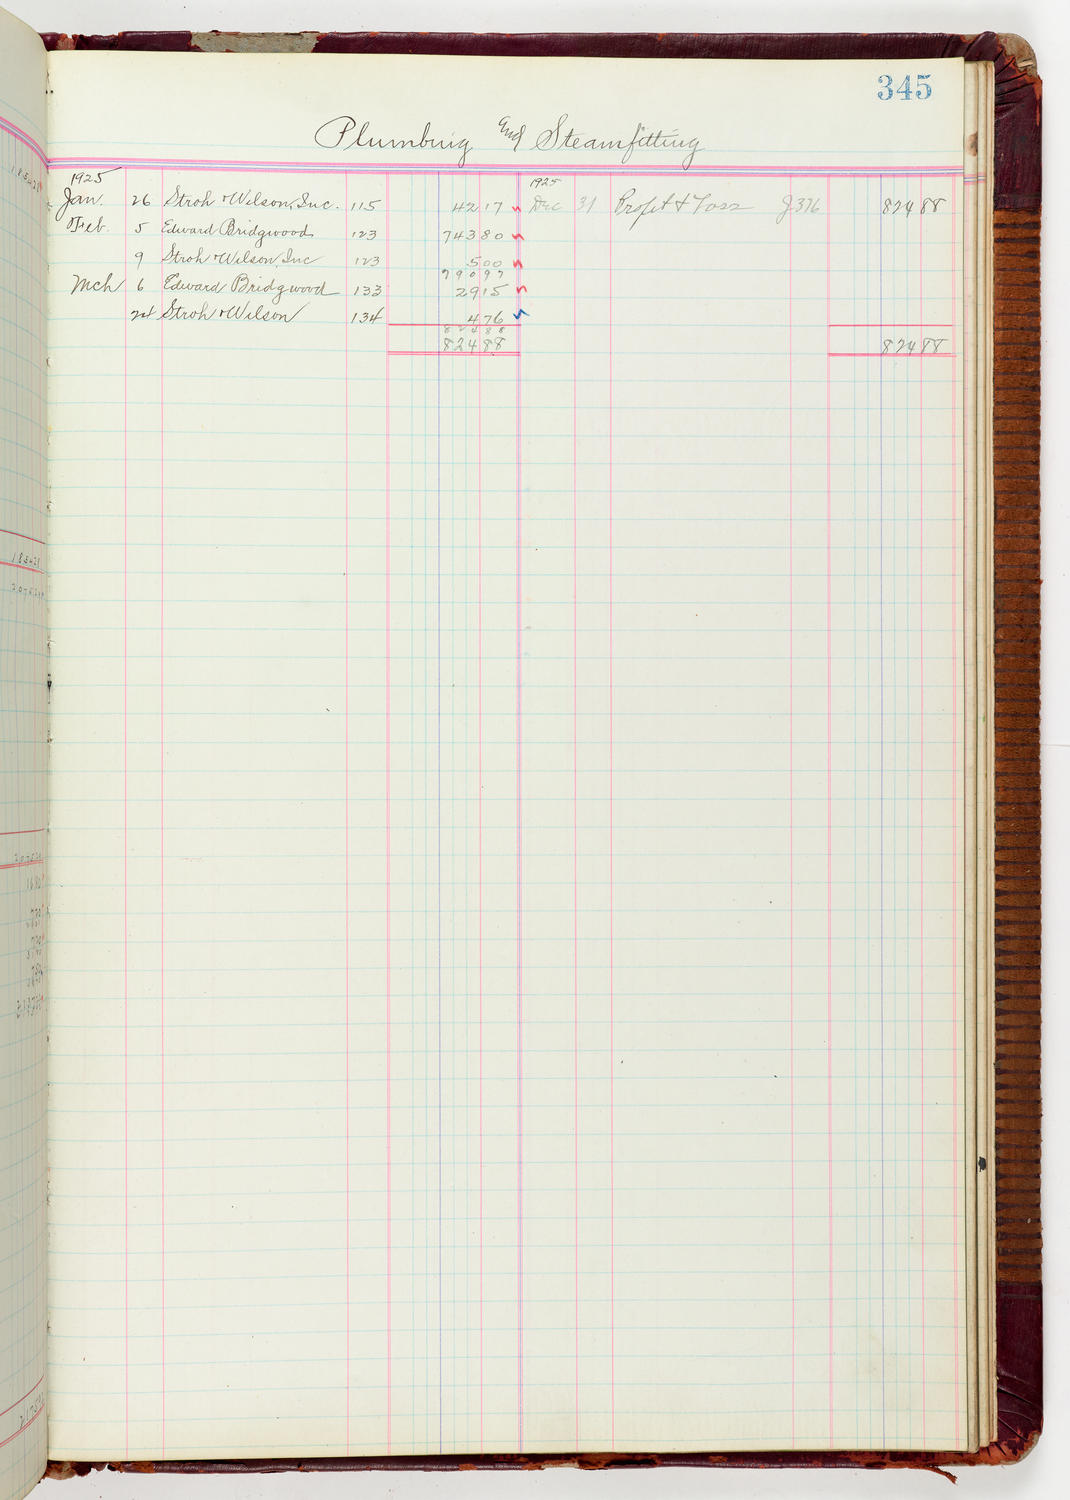 345
Plumbing and Steamfitting
1925 1925
Jan. 26 Stroh & Wilson, Inc. 115 42 17 Dec 31 Profit & Loss J376 824 88
Feb. 5 Edward Bridgwood 123 743 80
9 Stroh & Wilson, Inc 123 5 00
790 97
Mch 6 Edward Bridgwood 133 29 15
24 Stroh & Wilson 134 4 76
824 88
824 88 824 88